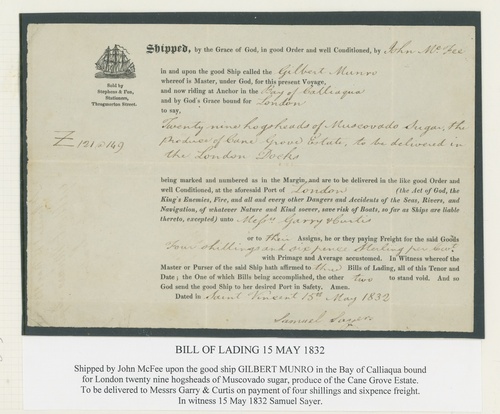 Shipped, by the Grace of God, in good Order and well Conditioned, by John McFee
in and upon the good Ship called the Gilbert Munro
whereof is Master, under God, for this present Voyage,
and now riding at Anchor in the Bay of Calliaqua
and by God's Grace bound for London
to say,
Sold by
Stephens & Fan,
Stationers,
Throgmorton Street.
121 @ 149
Twenty nine hogsheads of Muscovado Sugar, the
produce of Cane Grove Estate, to be delivered in
the London Docks
being marked and numbered as in the Margin, and are to be delivered in the like good Order and
well Conditioned, at the aforesaid Port of London (the Act of God, the
King's Enemies, Fire, and all and every other Dangers and Accidents of the Seas, Rivers, and
Navigation, of whatever Nature and Kind soever, save risk of Boats, so far as Ships are liable
thereto, excepted) unto Messrs Garry & Curtis
or to their Assigns, he or they paying Freight for the said Goods
Four shillings and sixpence Sterling per cwt.
with Primage and Average accustomed. In Witness whereof the
Master or Purser of the said Ship hath affirmed to three Bills of Lading, all of this Tenor and
Date; the One of which Bills being accomplished, the other two to stand void. And so
God send the good Ship to her desired Port in Safety. Amen.
Dated in Saint Vincent 15th May 1832
Samuel Sayer
BILL OF LADING 15 MAY 1832
Shipped by John McFee upon the good ship GILBERT MUNRO in the Bay of Calliaqua bound
for London twenty nine hogsheads of Muscovado sugar, produce of the Cane Grove Estate.
To be delivered to Messrs Garry & Curtis on payment of four shillings and sixpence freight.
In witness 15 May 1832 Samuel Sayer.